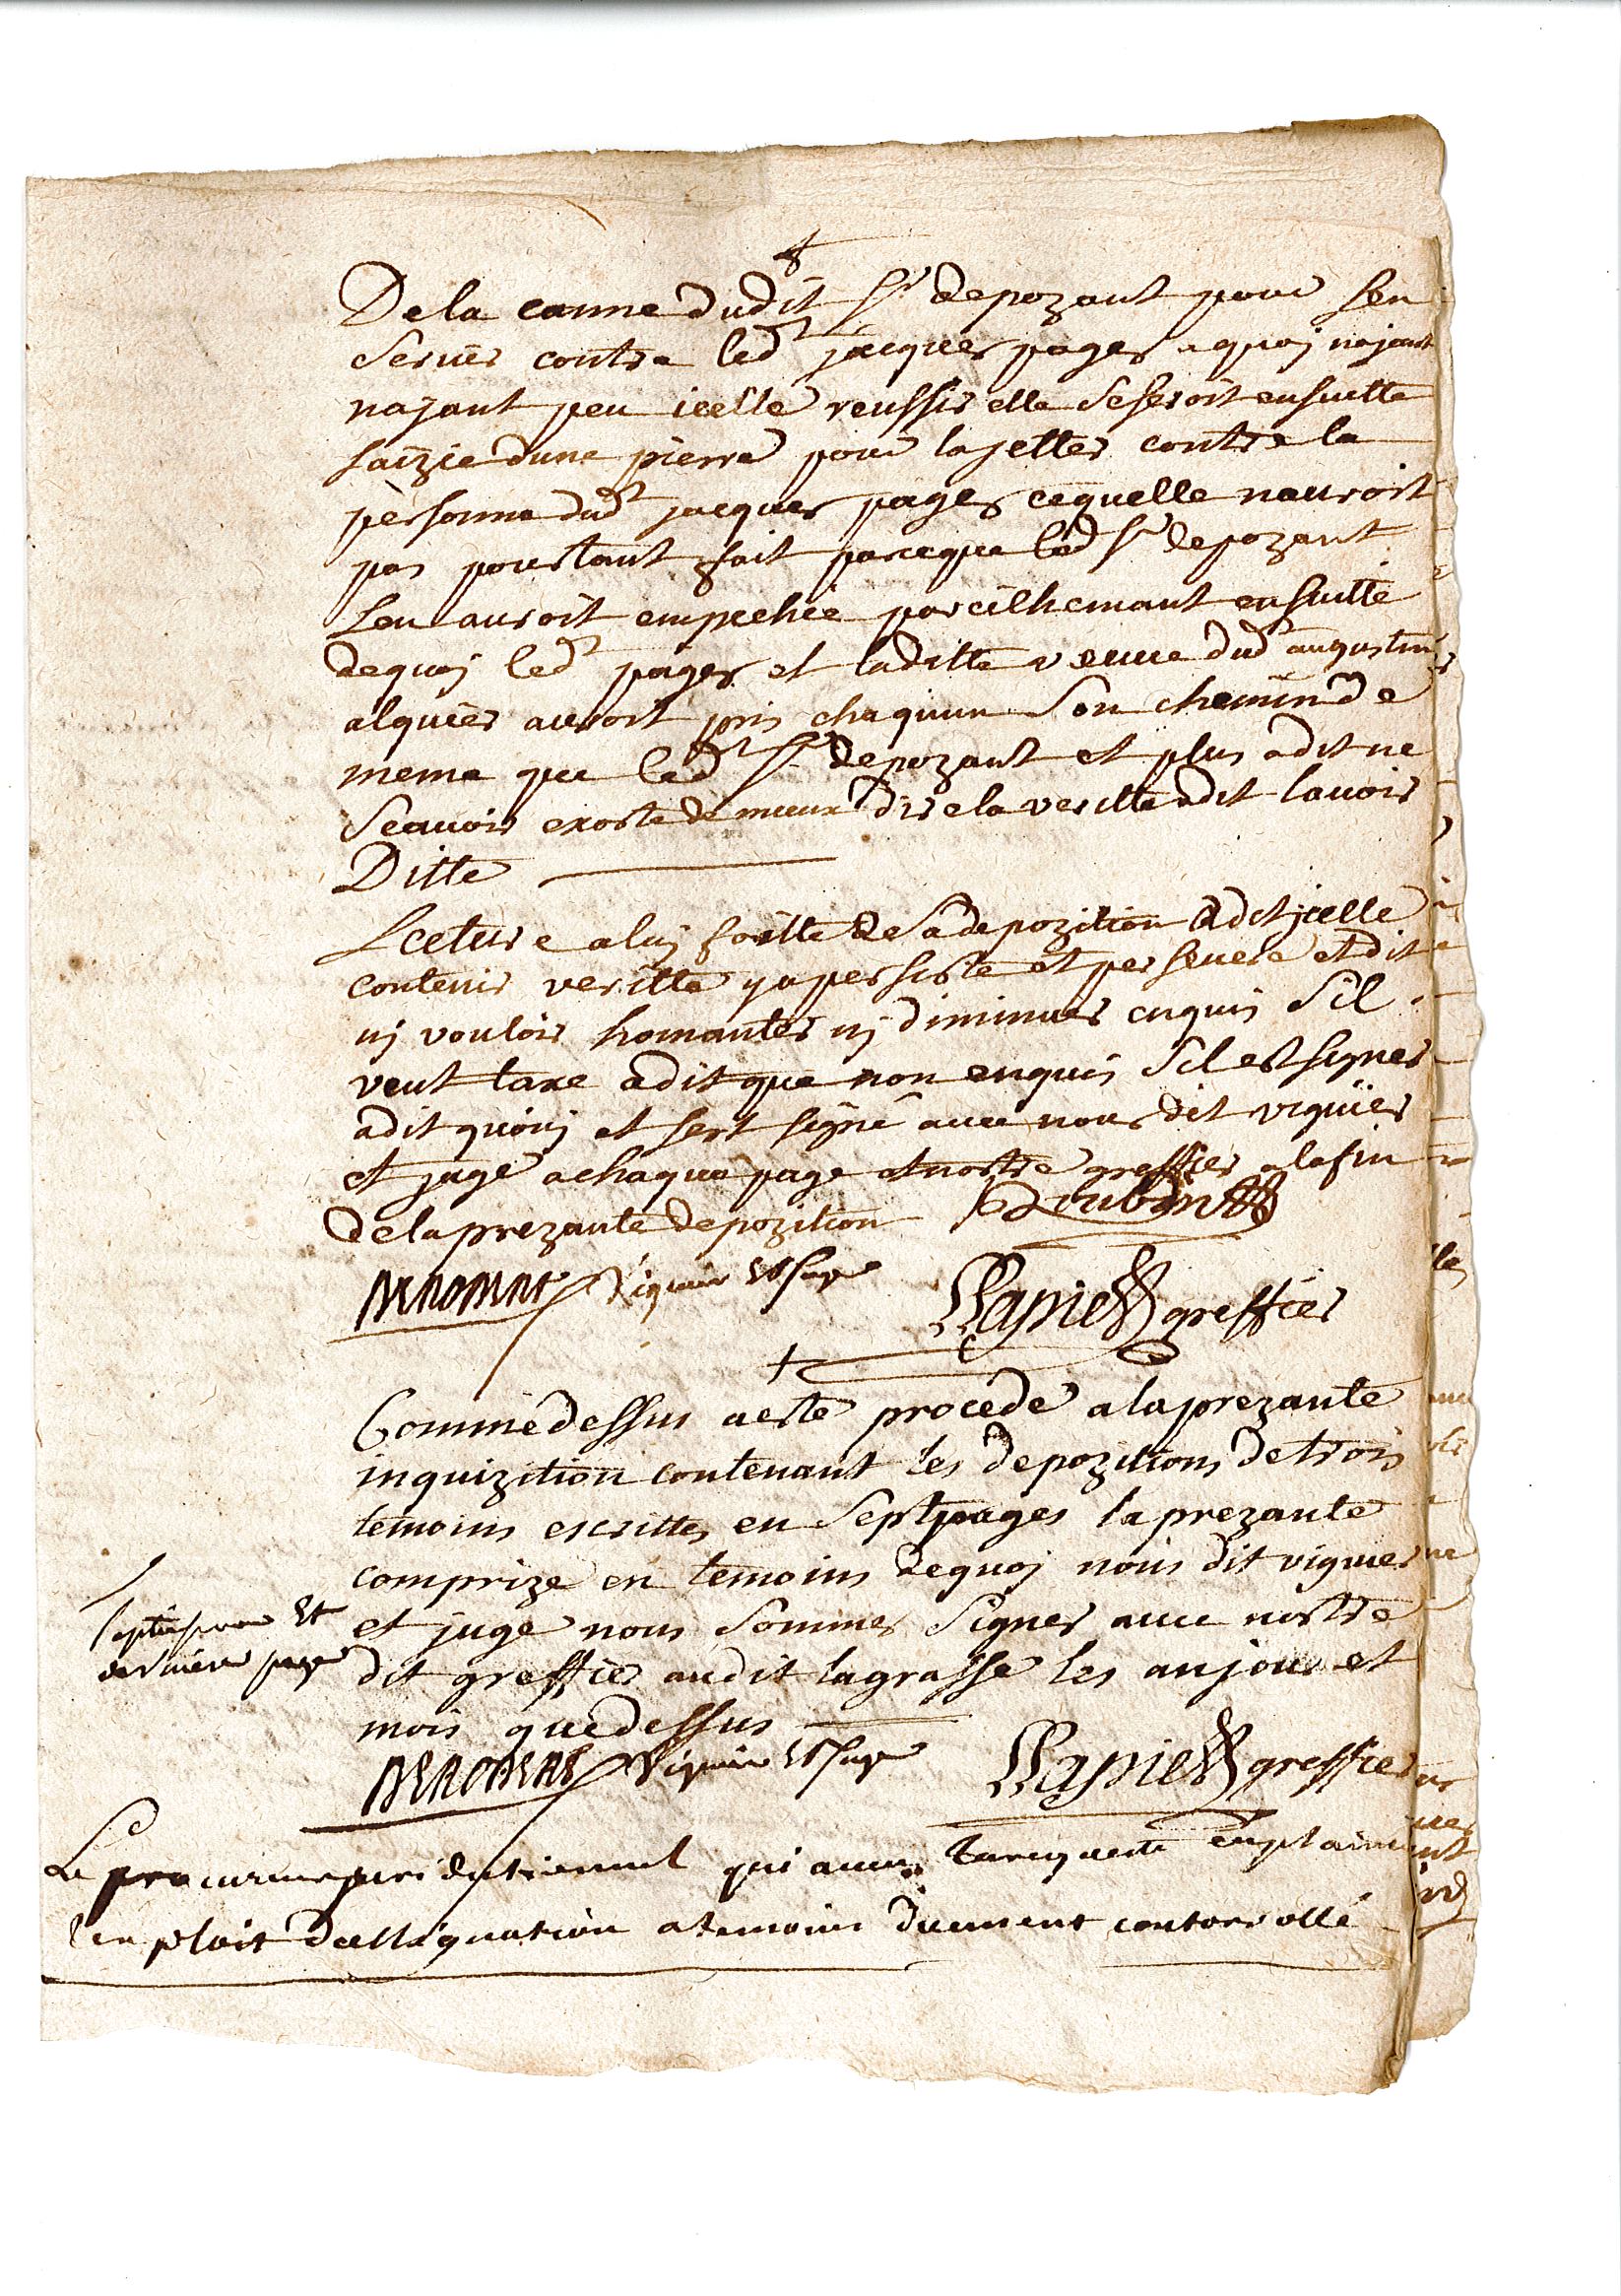 De la canne dudit Sr depozant pour sen
servir contre led jacques pages a quoj najant
najant peu icelle reussir elle se seroit ensuitte
saizie dune pierre pour la jetter contre la
personne dud jacques pages ce quelle nauroit
pas pourtant fait parce que led Sr depozant
Len auroit empechée pareilhemant ensuitte
de quoj led pages et laditte veuve dud augustin
alquier auroit pris chaquun son chemin de
meme que led Sr depozant et plus a dit ne
scavoir exorte de mieux dire la veritte a dit lavoir
Ditte
Lecture a luj faitte de sa depozition a dit jcelle
contenir veritte y a persiste et perseveré et dit
nj vouloir homanter nj diminuer enquis sil
veut taxe a dit que non enquis sil est signer
a dit quoüj et sest signé avec nous dit viguier
et juge a chaque page et nostre greffier a la fin
de la prezante depozition
viguier et juge
greffier
Comme dessus a esté procedé a la prezante
inquizition contenant les depozitions de trois
temoins escrittes en sept pages la prezante
comprize en temoins de quoj nous dit viguier
et juge nous sommes signes avec nostre
septiesme et
derniere page
dit greffier audit lagrasse les an jour et
mois que dessus
viguier et juge
greffier
Le procureur juridictionnel qui a veu la requeste en plainte
lenploit dassignation a temoins duement controrollé